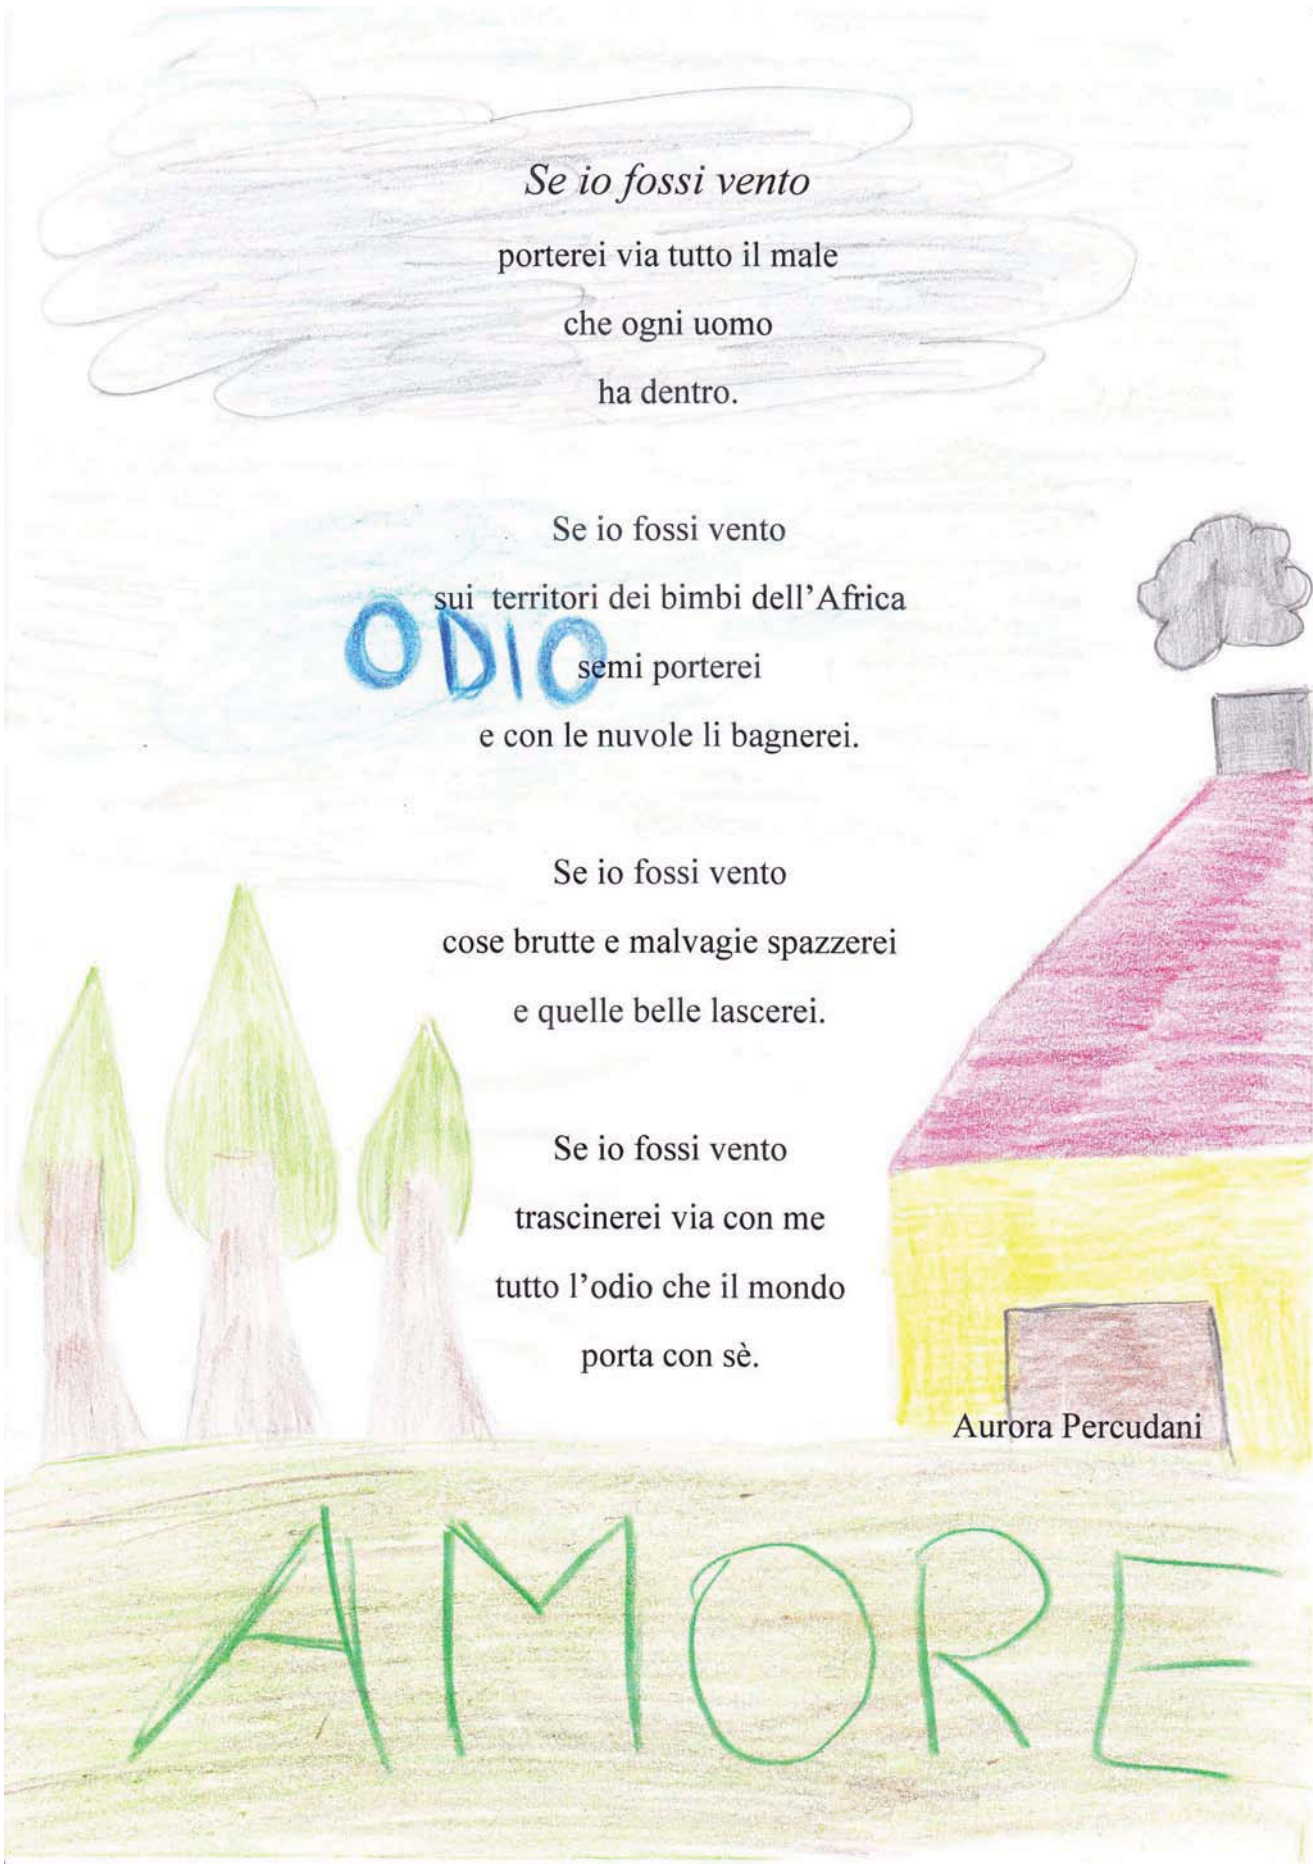 Se io fossi vento
porterei via tutto il male
che ogni uomo
ha dentro.
Se io fossi vento
sui territori dei bimbi dell'Africa
ODIO
semi porterei
e con le nuvole li bagnerei.
Se io fossi vento
cose brutte e malvagie spazzerei
e quelle belle lascerei.
Se io fossi vento
trascinerei via con me
tutto l'odio che il mondo
porta con sè.
Aurora Percudani
AMORE